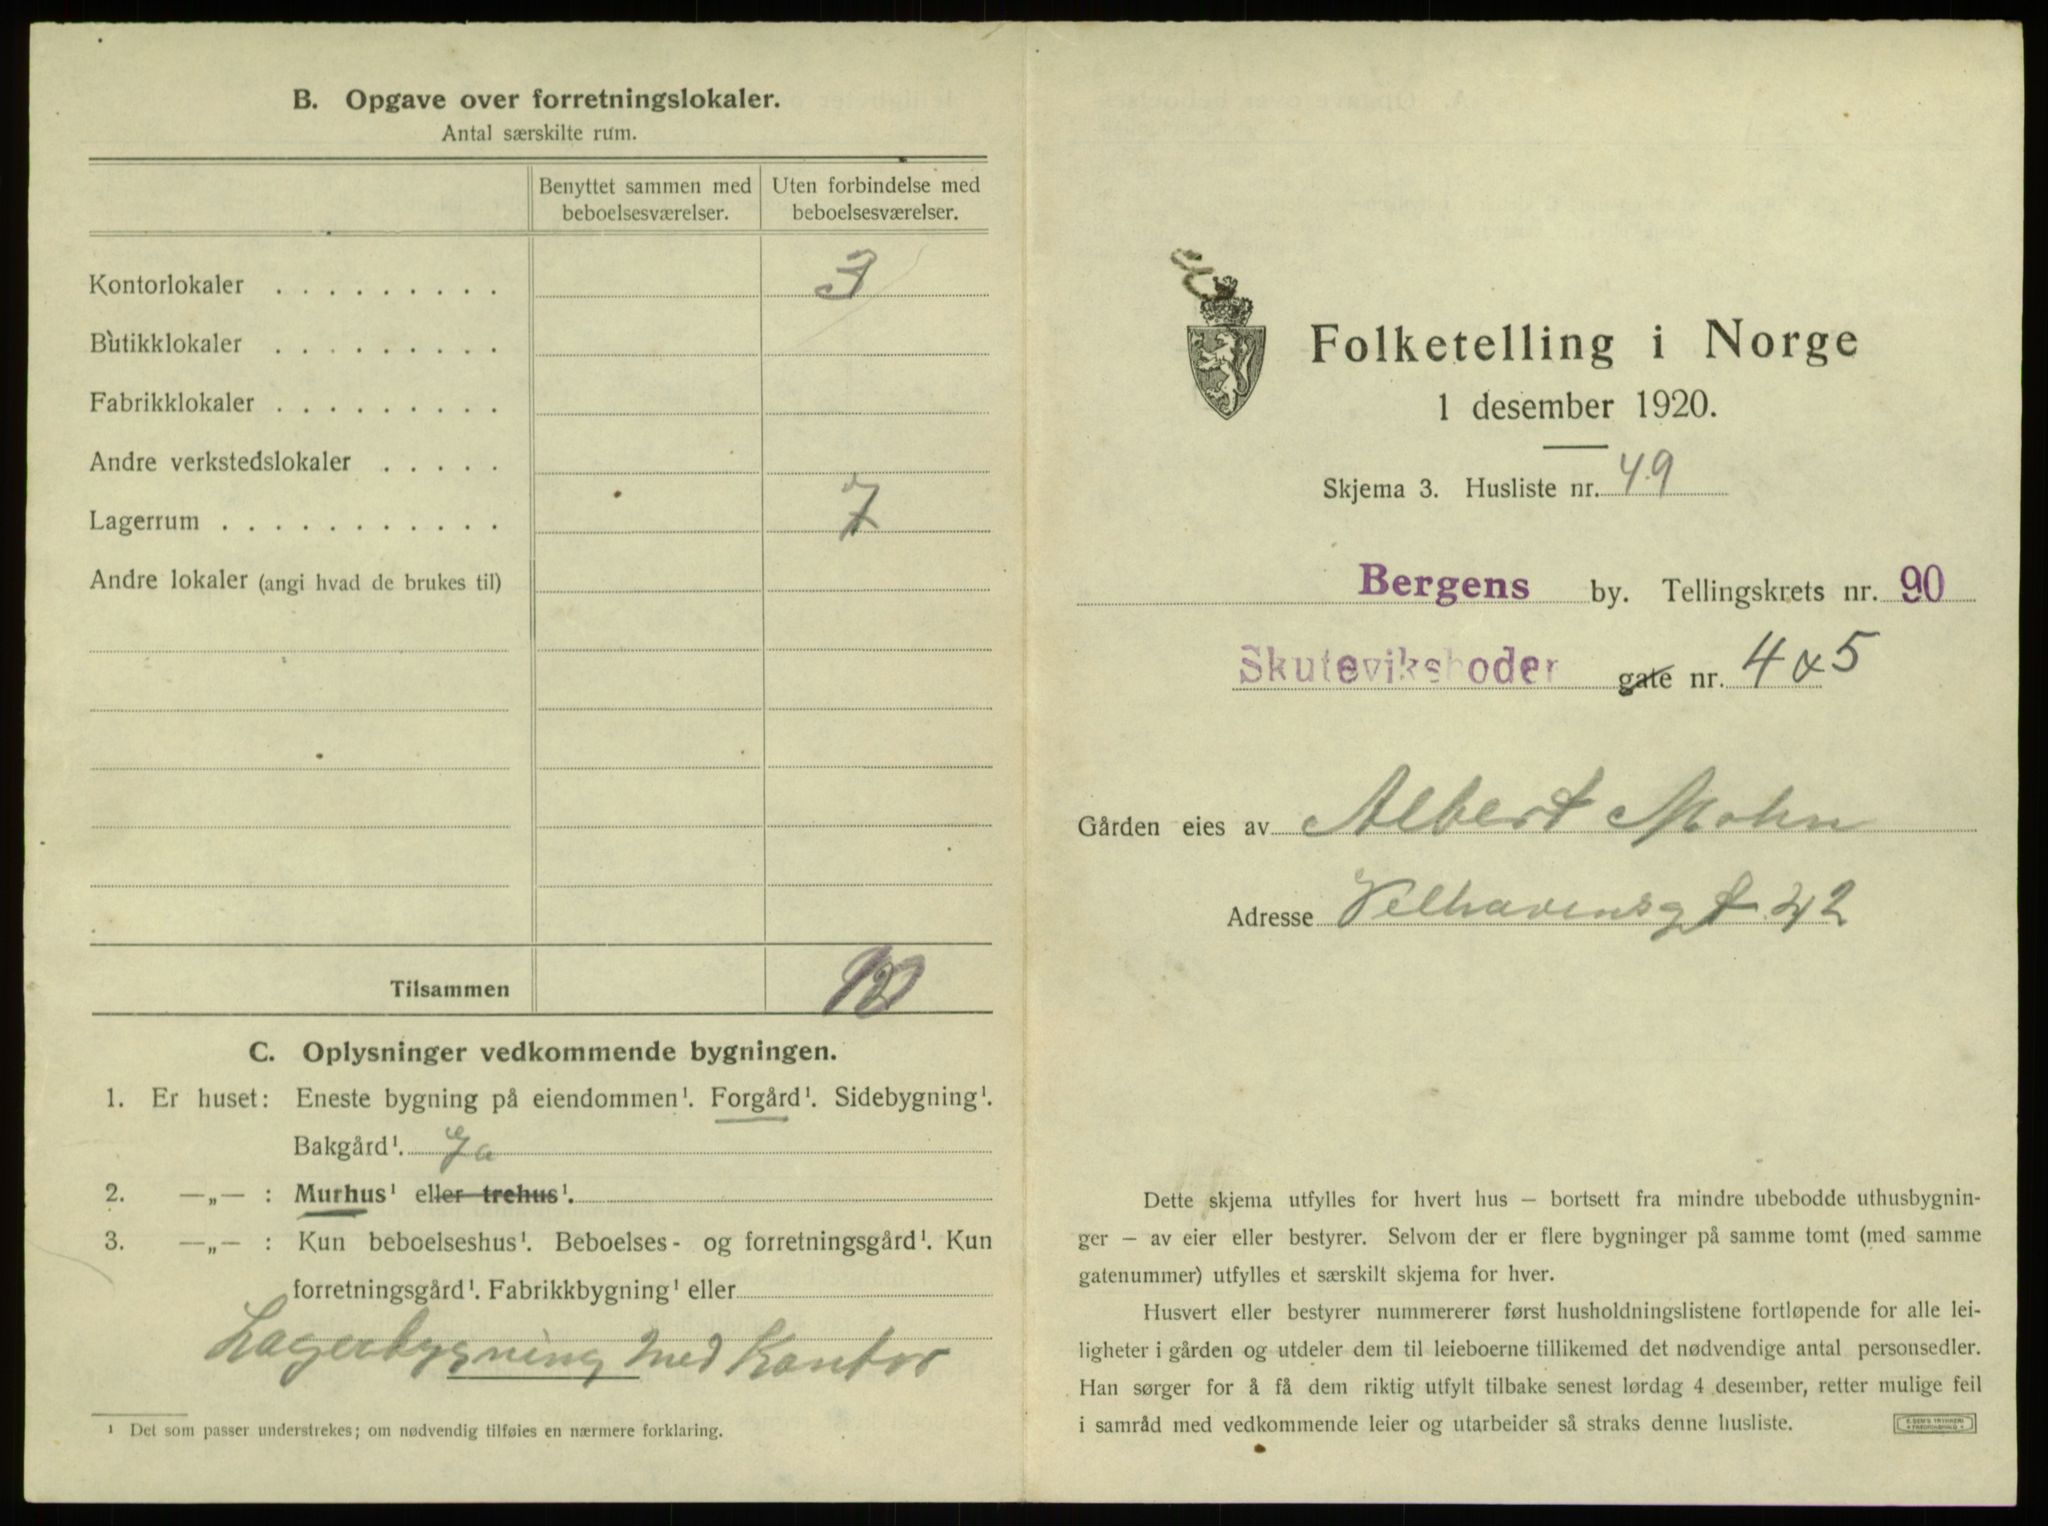 B. Opgave over forretningslokaler.
Antal særskilte rum.
Benyttet sammen med beboelsesværelser.
Uten forbindelse med beboelsesværelser.
Kontorlokaler . . . . . . . . . 3
Butikklokaler . . . . . . . . .
Fabrikklokaler . . . . . . . . .
Andre verkstedslokaler . . . . .
Lagerrum . . . . . . . . . . . . 7
Andre lokaler (angi hvad de brukes til)
Tilsammen
C. Oplysninger vedkommende bygningen.
1. Er huset: Eneste bygning på eiendommen¹. Forgård¹. Sidebygning¹.
Bakgård¹. Ja
2. —„— : Murhus¹ eller trehus¹.
3. —„— : Kun beboelseshus¹. Beboelses- og forretningsgård¹. Kun
forretningsgård¹. Fabrikkbygning¹ eller
Lagerbygning med Kontor
¹ Det som passer understrekes; om nødvendig tilføies en nærmere forklaring.
Folketelling i Norge
1 desember 1920.
Skjema 3. Husliste nr. 49
Bergens by. Tellingskrets nr. 90
Skuteviksboder gate nr. 4 & 5
Gården eies av Albert Mohn
Adresse Velhavensgt 42
Dette skjema utfylles for hvert hus – bortsett fra mindre ubebodde uthusbygnin-
ger – av eier eller bestyrer. Selvom der er flere bygninger på samme tomt (med samme
gatenummer) utfylles et særskilt skjema for hver.
Husvert eller bestyrer nummererer først husholdningslistene fortløpende for alle lei-
ligheter i gården og utdeler dem til leieboerne tillikemed det nødvendige antal personsedler.
Han sørger for å få dem riktig utfylt tilbake senest lørdag 4 desember, retter mulige feil
i samråd med vedkommende leier og utarbeider så straks denne husliste.